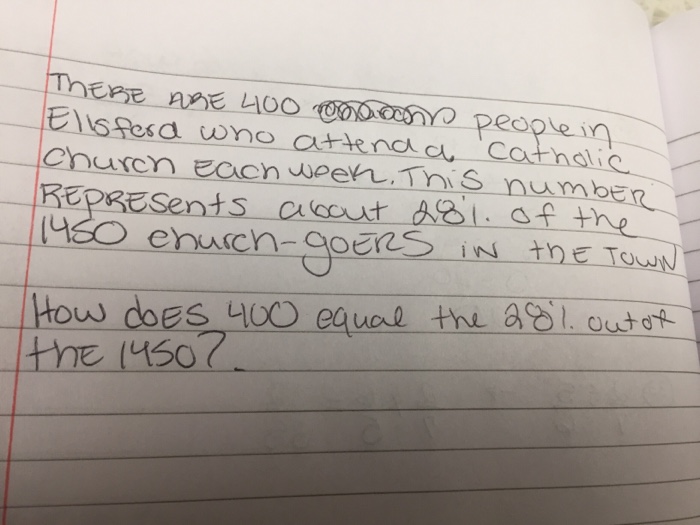 THERE ARE 400 people in
Ellsford who attend a Catholic
church each week. This number
REPRESents about 28%. of the
1450 church-goERS iN thE TOWN
How doES 400 equal the 28%. out of
thE 1450?